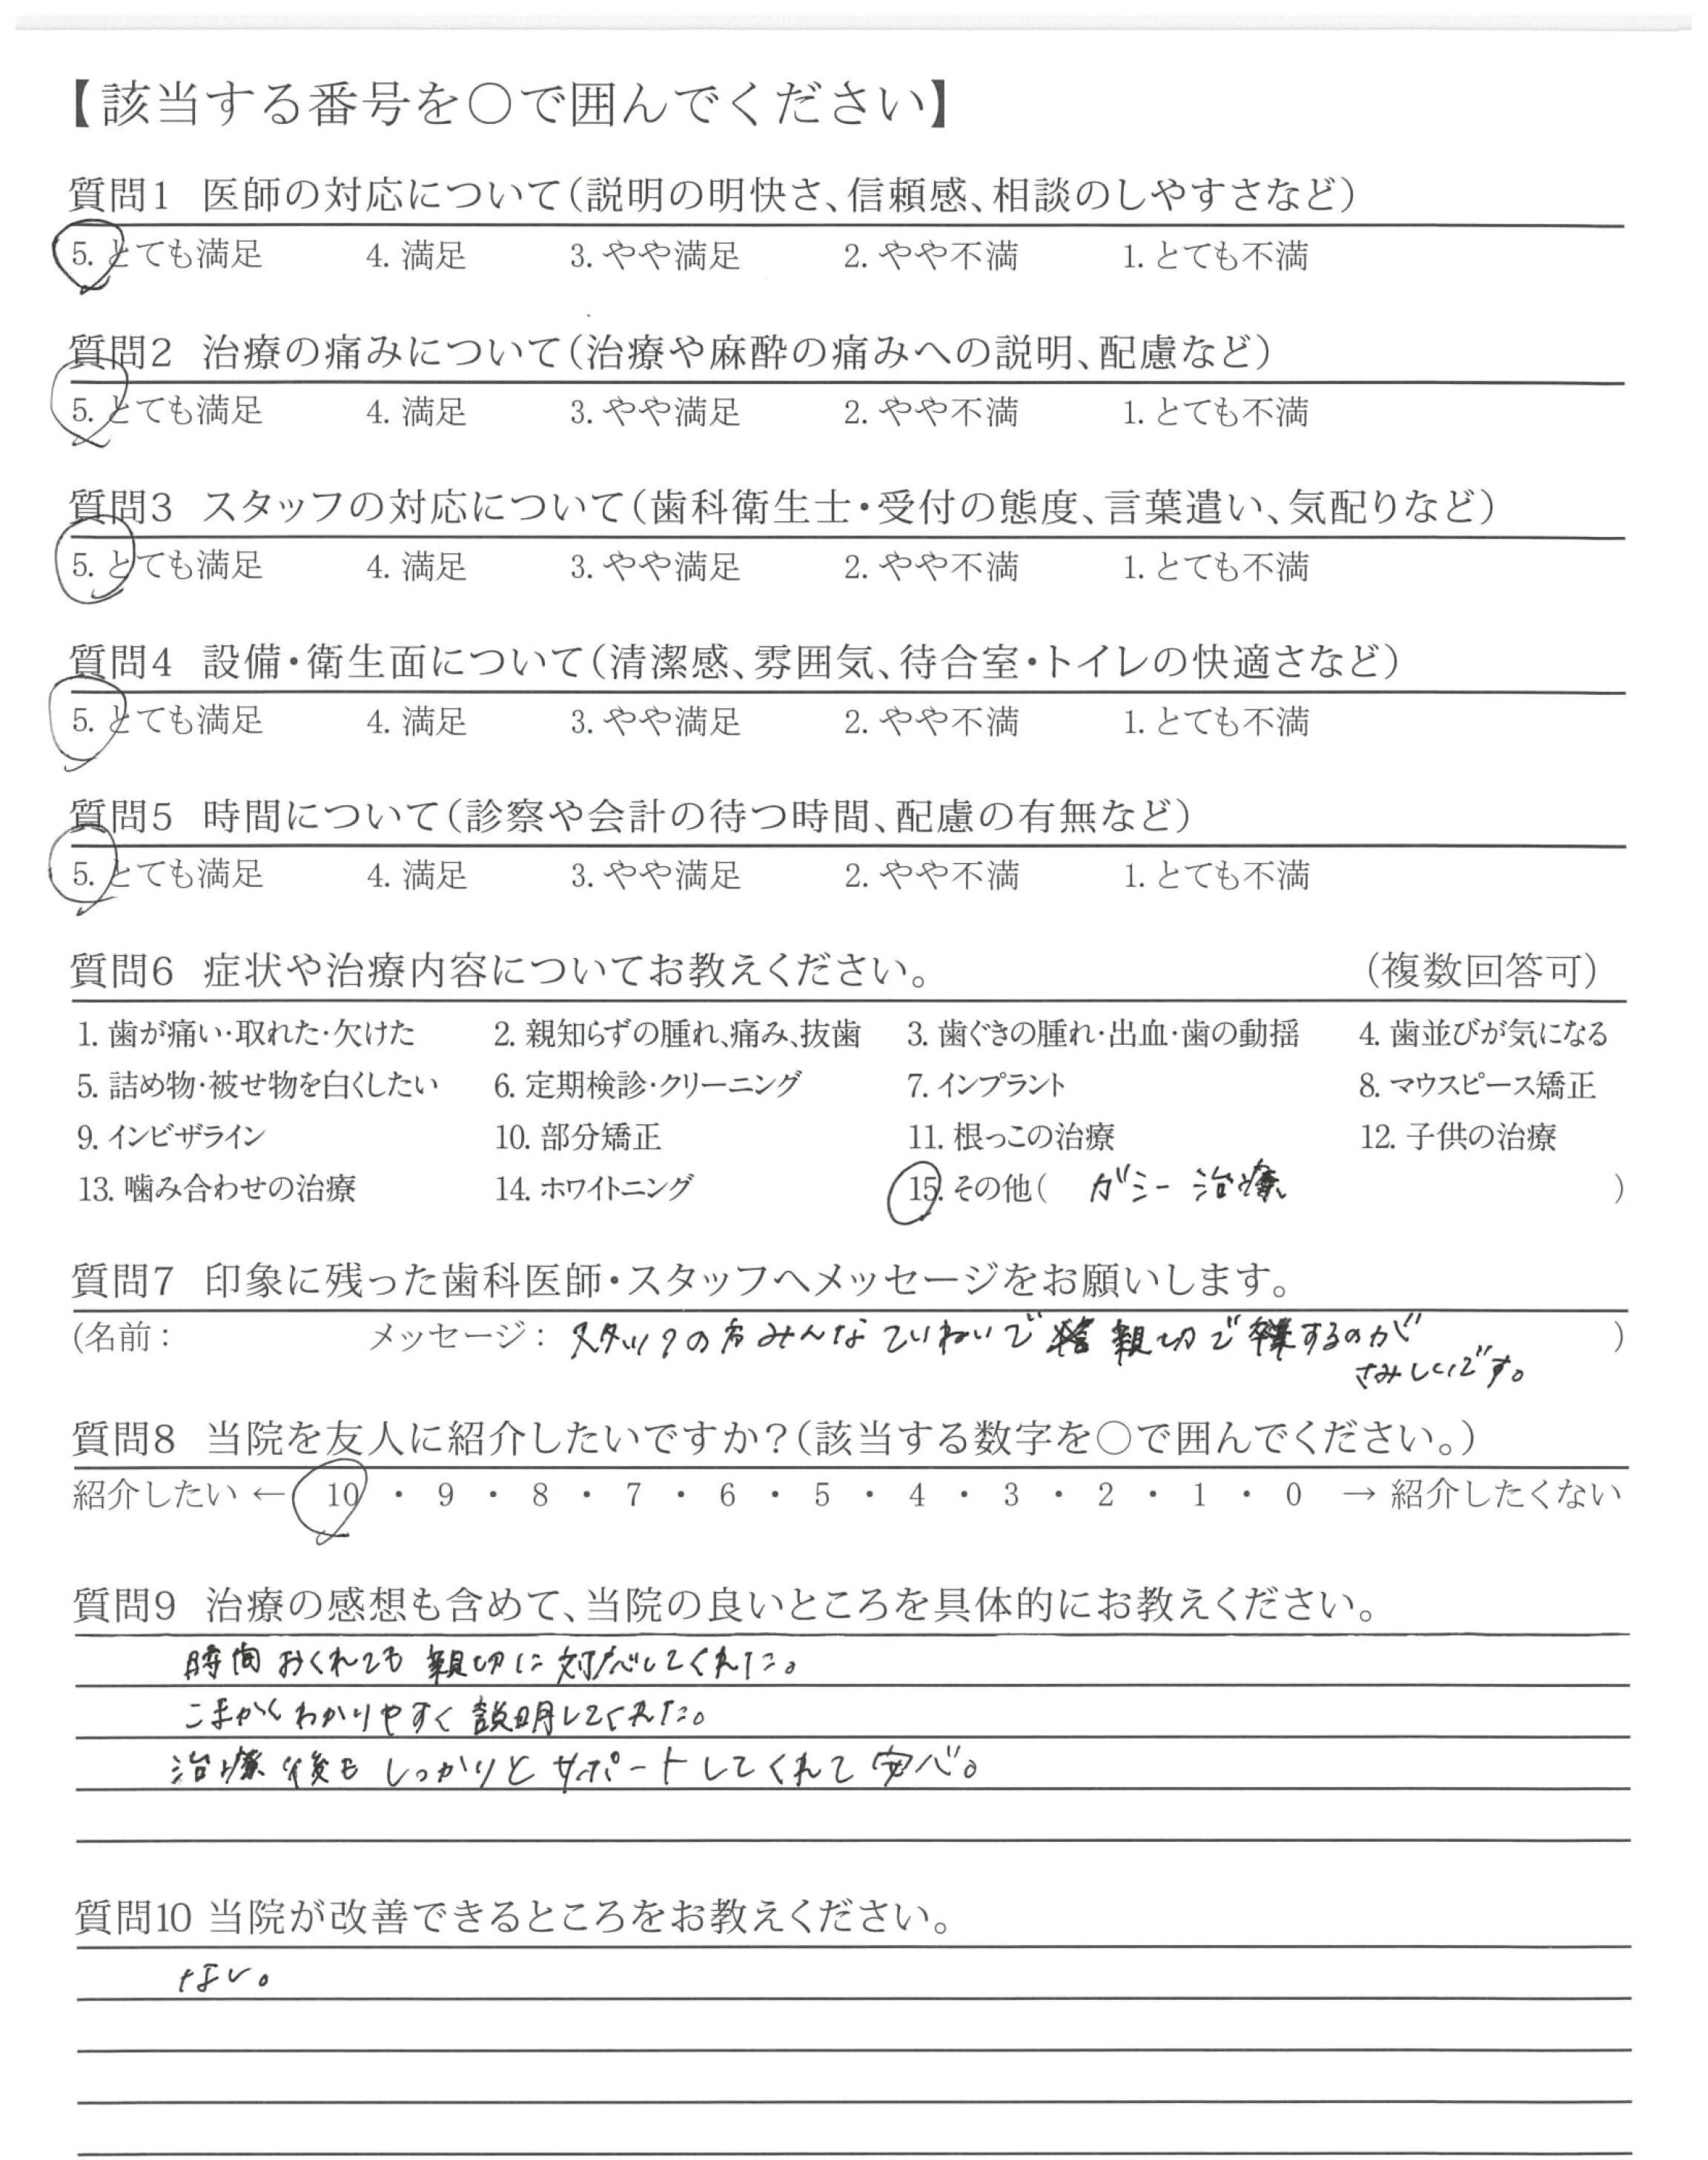 【該当する番号を○で囲んでください】
質問1 医師の対応について(説明の明快さ、信頼感、相談のしやすさなど)
5. とても満足 4. 満足 3. やや満足 2. やや不満 1. とても不満
質問2 治療の痛みについて(治療や麻酔の痛みへの説明、配慮など)
5. とても満足 4. 満足 3. やや満足 2. やや不満 1. とても不満
質問3 スタッフの対応について(歯科衛生士・受付の態度、言葉遣い、気配りなど)
5. とても満足 4. 満足 3. やや満足 2. やや不満 1. とても不満
質問4 設備・衛生面について(清潔感、雰囲気、待合室・トイレの快適さなど)
5. とても満足 4. 満足 3. やや満足 2. やや不満 1. とても不満
質問5 時間について(診察や会計の待つ時間、配慮の有無など)
5. とても満足 4. 満足 3. やや満足 2. やや不満 1. とても不満
質問6 症状や治療内容についてお教えください。 (複数回答可)
1. 歯が痛い・取れた・欠けた 2. 親知らずの腫れ、痛み、抜歯 3. 歯ぐきの腫れ・出血・歯の動揺 4. 歯並びが気になる
5. 詰め物・被せ物を白くしたい 6. 定期検診・クリーニング 7. インプラント 8. マウスピース矯正
9. インビザライン 10. 部分矯正 11. 根っこの治療 12. 子供の治療
13. 噛み合わせの治療 14. ホワイトニング 15. その他( ガミー治療 )
質問7 印象に残った歯科医師・スタッフへメッセージをお願いします。
(名前: メッセージ: スタッフの方みんなていねいで 親切で卒業するのが )
さみしいです。
質問8 当院を友人に紹介したいですか?(該当する数字を○で囲んでください。)
紹介したい ← 10 ・ 9 ・ 8 ・ 7 ・ 6 ・ 5 ・ 4 ・ 3 ・ 2 ・ 1 ・ 0 → 紹介したくない
質問9 治療の感想も含めて、当院の良いところを具体的にお教えください。
時間おくれても親切に対応してくれた。
こまかくわかりやすく説明してくれた。
治療後もしっかりとサポートしてくれて安心。
質問10 当院が改善できるところをお教えください。
ない。